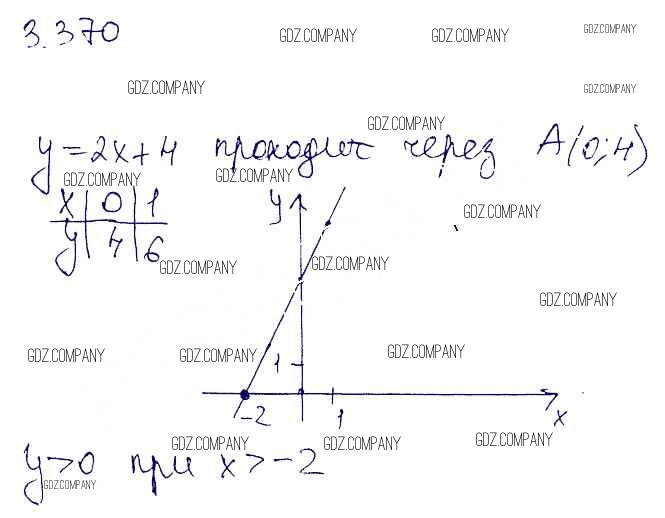 3.370
GDZ.COMPANY GDZ.COMPANY GDZ.COMPANY
GDZ.COMPANY GDZ.COMPANY
GDZ.COMPANY
y = 2x + 4 проходит через A(0; 4)
GDZ.COMPANY GDZ.COMPANY
x 0 1
y 4 6
y
GDZ.COMPANY
GDZ.COMPANY GDZ.COMPANY
GDZ.COMPANY
GDZ.COMPANY GDZ.COMPANY GDZ.COMPANY
1
-2 1 x
GDZ.COMPANY GDZ.COMPANY GDZ.COMPANY
y > 0 при x > -2
GDZ.COMPANY